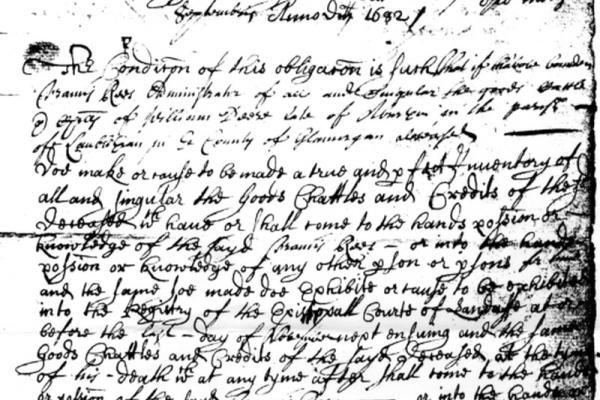 Septembris Anno Dni 1682
The Condicõn of this obligacõn is such that if the above bounden
Francis Rees Administrator of all and singular the goods Cattle
of William Deere late of in the parish
of in ye County of Glamorgan deceased
doe make or cause to be made a true and pfect Inventory of
all and singular the Goods Chattles and Credits of the
deceased wch have or shall come to the hands possion or
knowledge of the sayd Francis Rees - or into the hands
possion or knowledge of any other pson or psons for him
and the same soe made doe Exhibite or cause to be exhibited
into the Registry of the Episcopall Courte of Landaffe at or
before the last - day of November next ensuing and the same
Goods Chattles and Credits of the sayd deceased, at the tyme
of his - death wch at any tyme after shall come to the hands
or possion of the sayd or into the hands or